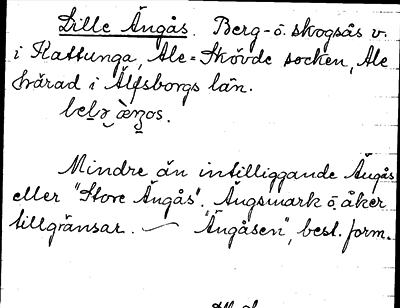 Lille Ängås. Berg- o. skogsås v.
i Kattunga, Ale-Skövde socken, Ale
härad i Älfsborgs län.
Mindre än intilliggande Ängås
eller "Store Ängås". Ängsmark o. åker
tillgränsar. — "Ängåsen", best. form.